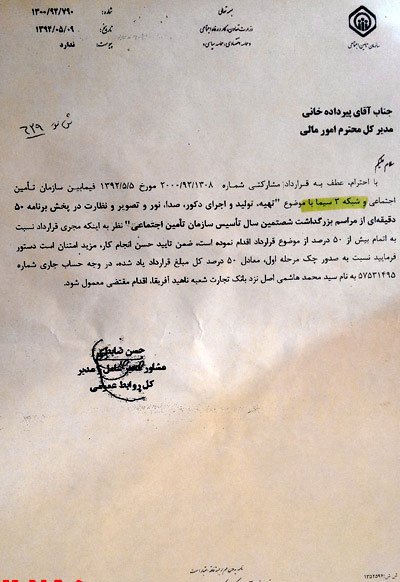 بسمه تعالی
وزارت تعاون، کار و رفاه اجتماعی
شماره: ۱۳۰۰/۹۲/۷۹۰
تاریخ: ۱۳۹۲/۰۵/۰۹
پیوست: ندارد
سازمان تأمین اجتماعی
جناب آقای پیرداده خانی
مدیر کل محترم امور مالی
سلام علیکم
با احترام، عطف به قرارداد مشارکتی شماره ۲۰۰۰/۹۲/۱۳۰۸ مورخ ۱۳۹۲/۵/۵ فیمابین سازمان تأمین
اجتماعی و شبکه ۳ سیما با موضوع "تهیه، تولید و اجرای دکور، صدا، نور و تصویر و نظارت در پخش برنامه ۵۰
دقیقه‌ای از مراسم بزرگداشت شصتمین سال تأسیس سازمان تأمین اجتماعی" نظر به اینکه مجری قرارداد نسبت
به اتمام بیش از ۵۰ درصد از موضوع قرارداد اقدام نموده است، ضمن تایید حسن انجام کار، مزید امتنان است دستور
فرمایید نسبت به صدور چک مرحله اول، معادل ۵۰ درصد کل مبلغ قرارداد یاد شده، در وجه حساب جاری شماره
۵۷۵۳۱۴۹۵ به نام سید محمد هاشمی اصل نزد بانک تجارت شعبه ناهید آفریقا، اقدام مقتضی معمول شود.
حسن
مشاور مدیر عامل و مدیر
کل روابط عمومی